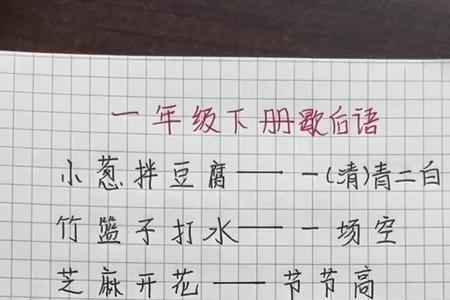 一年级下册歇后语
小葱拌豆腐——一(清)青二白
竹篮子打水——一场空
芝麻开花——节节高